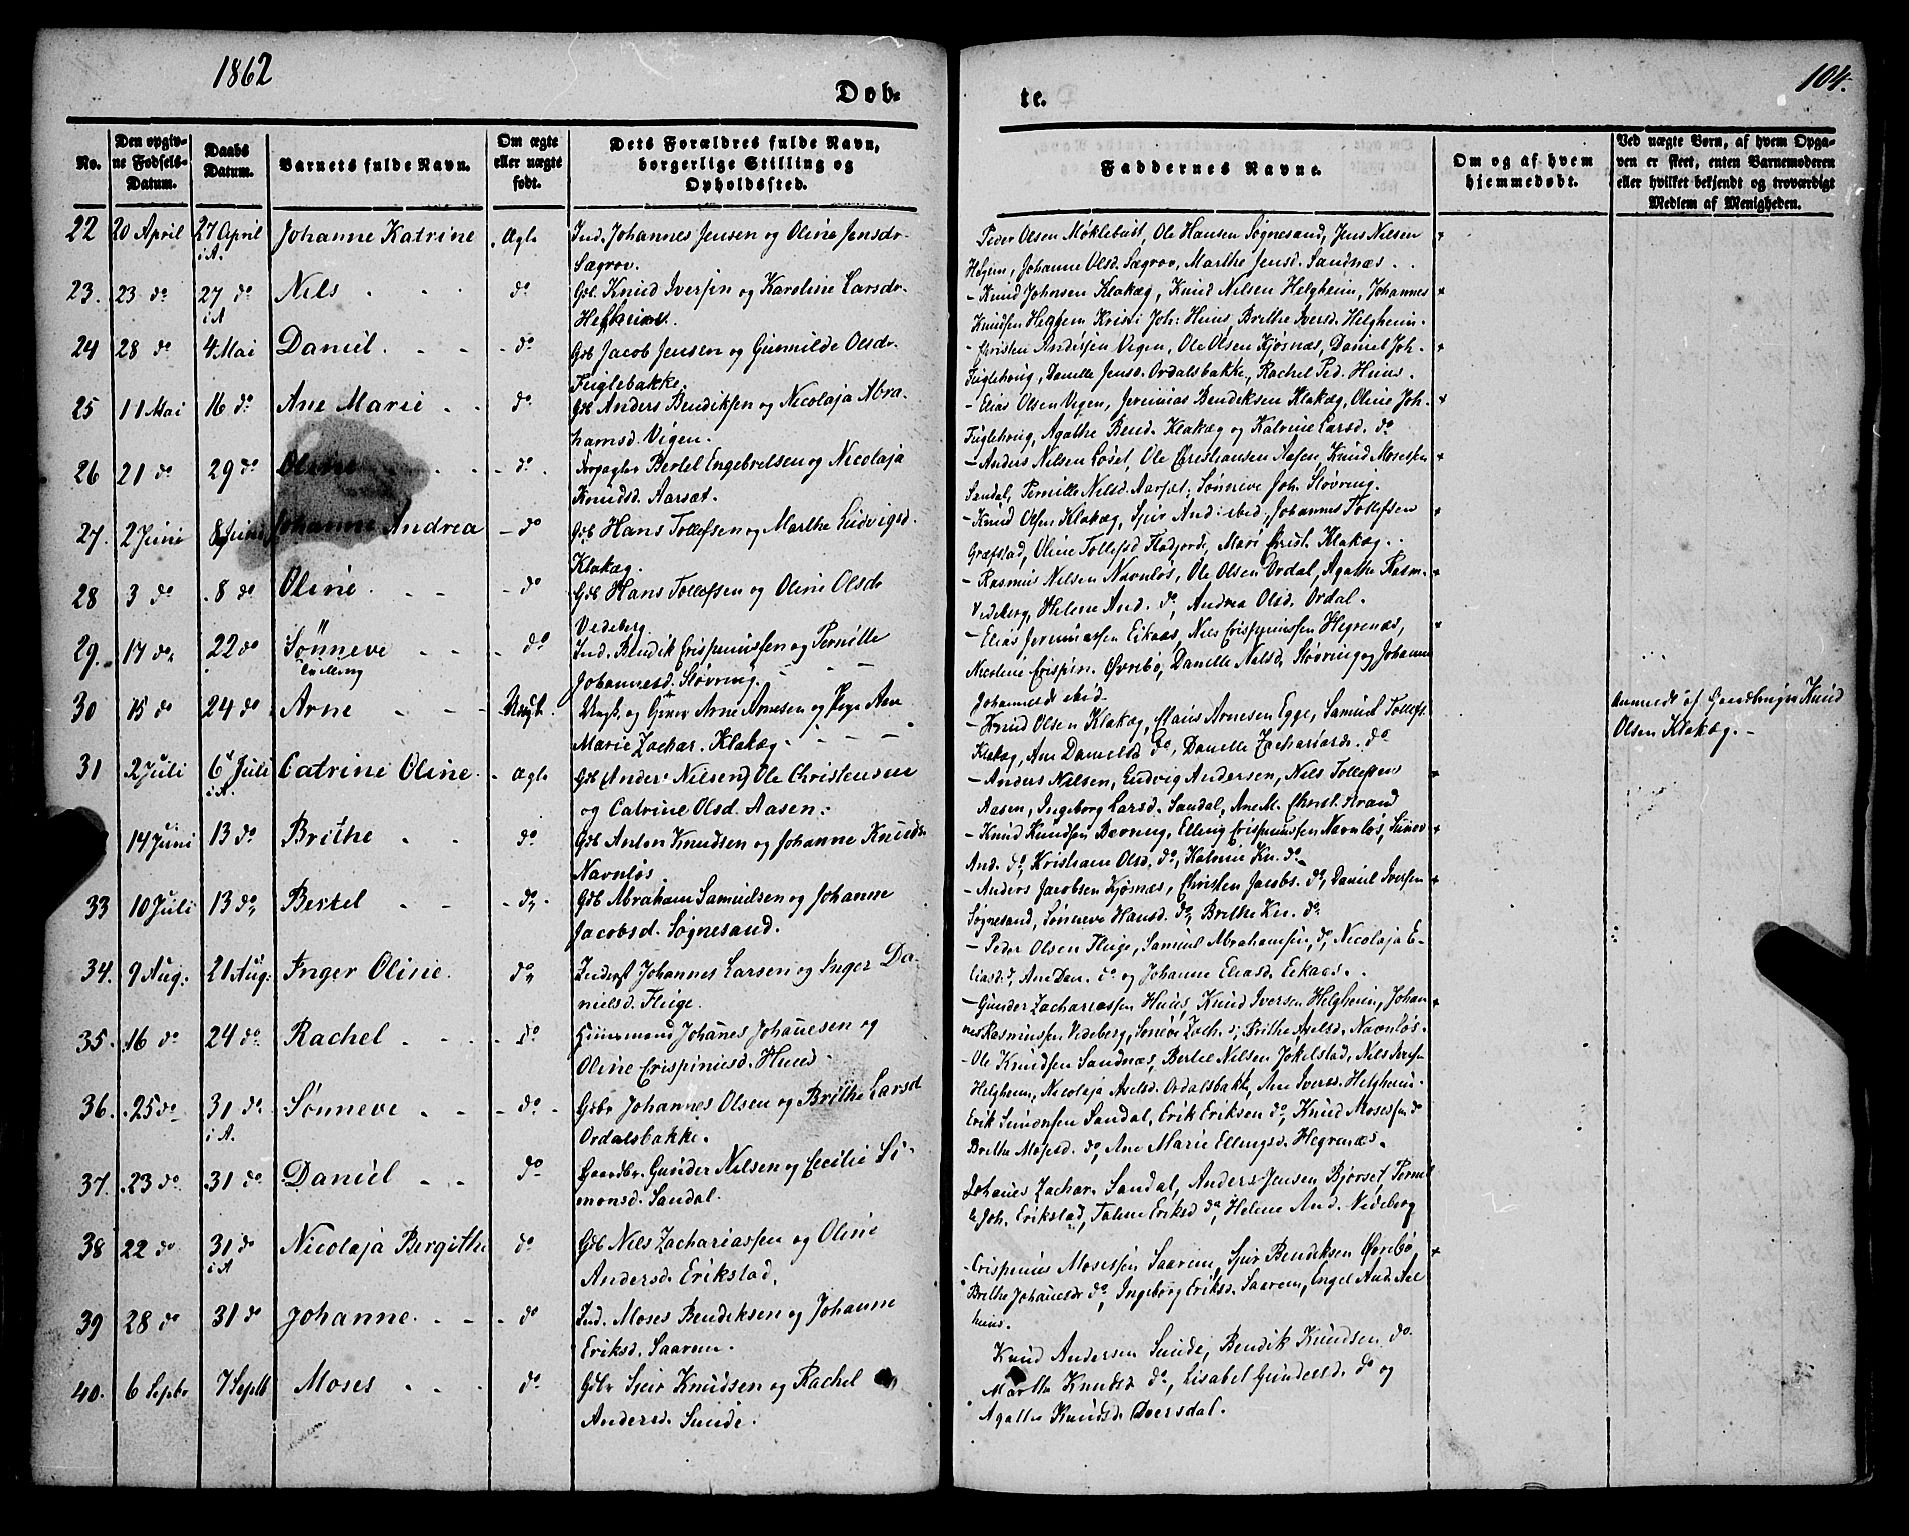 1862
Døb-
te.
104.
No.
Den opgiv-
ne Fødsels-
Datum.
Daabs
Datum.
Barnets fulde Navn.
Om ægte
eller uægte
født.
Dets Forældres fulde Navn,
borgerlige Stilling og
Opholdssted.
Faddernes Navne.
Om og af hvem
hjemmedøbt.
Ved uægte Børn, af hvem Opga-
ven er skeet, enten Barnemoderen
eller hvilket bekjendt og troværdigt
Medlem af Menigheden.
22 20 April 27 April Johanne Katrine Ægte Ind. Johannes Jensen og Oline Jensdr. Peder Olsen Møklebust, Ole Hansen Søgnesand, Jens Nilsen
i A. Sægrov. Helgem, Johanne Olsd. Sægrov, Marthe Jensd. Sandnæs.
23. 23 do 27 do Nils do Gbr. Knud Iversen og Karoline Larsdr. Knud Johnsen Klakæg, Knud Nilsen Helgheim, Johannes
i A Helgheim. Knudsen Helghem Kristi Joh: Huus, Brithe Ivers. Helgheim.
24 28 do 4 Mai Daniel do Gdb Jacob Jensen og Gunnilde Olsdr. Christen Andersen Vegen, Ole Olsen Kjøsnæs, Daniel Joh.
Fuglebakke. Fuglehoug, Danielle Jensd. Ordalsbakke, Rachel Ped. Huus.
25 11 Mai 16 do Ane Marie do Gdb Anders Bendiksen og Nicolaja Abra- Elias Olsen Vegen, Jeremias Bendiksen Klakæg, Oline Joh
hamsd. Vigen. Fuglehoug, Agathe Bend. Klakæg og Katrine Larsd. do
26 21 do 29 do Oline do Forpagter Bertel Engebretsen og Nicolaja Anders Nilsen Løset, Ole Christiansen Aasen, Knud Mosessen
Knudsd. Aarsæt. Sandal, Pernille Nilsd. Aarsæt, Sønneve Joh. Støvring.
27. 2 Juni 8 Juni Johanne Andrea do Gdb Hans Tollefsen og Marthe Ludvigsd. Knud Olsen Klakæg, Sjur And: ibid, Johannes Tollefsen
Klakæg. Græfstad, Oline Tollefsd Flodjorde, Mari Christ. Klakæg.
28 3 do 8 do Oline do Gdb Hans Tollefsen og Oline Olsdr Rasmus Nilsen Navnløs, Ole Olsen Ordal, Agathe Rasm.
Vedeberg Vedeberg, Helene And. do, Andrea Olsd. Ordal.
29. 17 do 22 do Sønneve do Ind. Bendik Crispiniussen og Pernille Elias Jeremiassen Eikaas, Nils Crispiniussen Hegrenæs,
Tvilling Johannesd. Støvring. Nicoline Crispin. Øvrebø, Danielle Nilsd, Støvring og Johanne
Johannesd ibid.
30 15 do 24 do Arne Uægt. Ungk. og Gaver Arne Arnesen og Pige Ane Knud Olsen Klakæg, Claus Arnesen Egge, Samuel Tollefs. Anmeldt af Gaardbruger Knud
Marie Zachar. Klakæg. Klakæg, Ane Danielsd do, Danielle Zachariasdr. do Olsen Klakæg.
31 2 Juli 6 Juli Catrine Oline Ægte Gdb (Anders Nilsen) Ole Christensen Anders Nilsen, Ludvig Andersen, Nils Tollefsen
i A. og Catrine Olsd. Aasen. Aasen, Ingeborg Larsd. Sandal, Ane M. Christ. Strand
14 Juni 13 do Brithe do Gdb Anton Knudsen og Johanne Knudsd. Knud Knudsen Berning, Elling Crispiniussen Navnløs,
Navnløs. And. do, Kristiane Olsd. do, Katrine Kn. do
33 10 Juli 13 do Bertel do Gdb Abraham Samuelsen og Johanne Anders Jacobsen Kjøsnæs, Christen Jacobs. do, Daniel Iversen
Jacobsd. Søgnesand. Søgnesand, Sønneve Hansd. do, Brithe Kn. do
34. 9 Aug: 21 Aug: Inger Oline do Inderst Johannes Larsen og Inger Da- Peder Olsen Fluge, Samuel Abrahamsen do, Nicolaja E-
nielsd. Fluge. liasd. do, Ane Dan. do og Johanne Eliasd. Eikaas.
35. 16 do 24 do Rachel do Huusmand Johanes Johanesen og Gunder Zachariassen Huus, Knud Iversen Helgheim, Johan-
Oline Crispiniusd. Huus. nes Rasmussen Vedeberg, Søneve Zach. do, Brithe Axelsd. Navnløs.
36. 25 do 31 do Sønneve do Gdbr Johannes Olsen og Brithe Larsd Ole Knudsen Sandnæs, Bertel Nilsen Jøkelstad, Nils Iversen
i A. Ordalsbakke. Helgheim, Nicolaja Axelsd. Ordalsbakke, Ane Iversd. Helgheim.
37. 23 do 31 do Daniel do Gaardbr. Gunder Nilsen og Cecilie Si- Erik Simonsen Sandal, Erik Eriksen do, Knud Mosessen do
monsd. Sandal. Brithe Mosesd. do, Ane Marie Ellingsd. Hegrenæs.
38 22 do 31 do Nicolaja Bergithe do Gdb Nils Zachariassen og Oline Johanes Zachar. Sandal, Anders Jensen Bjørset, Pernil
i A Andersd. Erikstad. le Joh. Erikstad, Talene Eriksd do, Helene And. Vedeberg
39 28 do 31 do Johanne do Ind. Moses Bendiksen og Johanne Crispinus Mosessen Saarem, Sjur Bendiksen Øvrebø,
Eriksd. Saarem. Brithe Johanesdr do, Ingeborg Eriksd. Saarem, Engel And. Aal
huus.
40. 6 Septbr 7 Septb Moses do Gdbr Sjur Knudsen og Rachel Knud Andersen Sunde, Bendik Knudsen do.
Andersd. Sunde. Marthe Knudsd do, Lisabet Gundersd. do og
Agathe Knudsd. Dversdal.